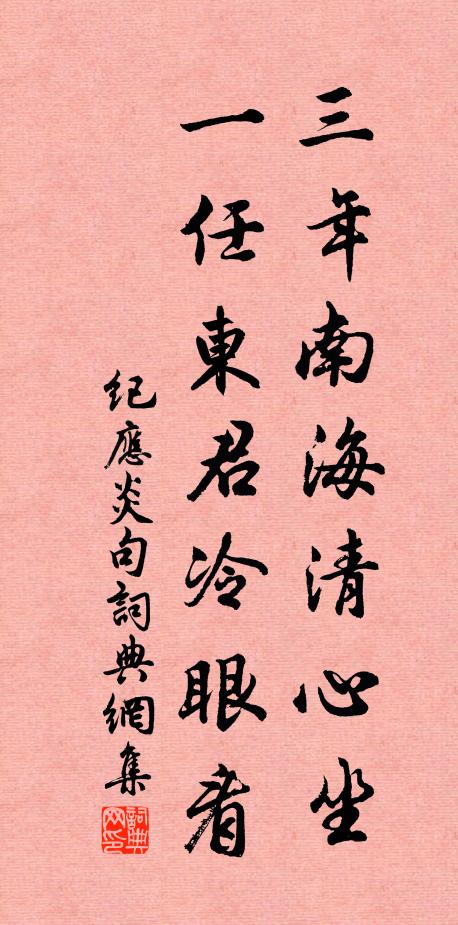 三年南海清心坐
一任東君冷眼看
紀應炎句詞典網集
詞典网印